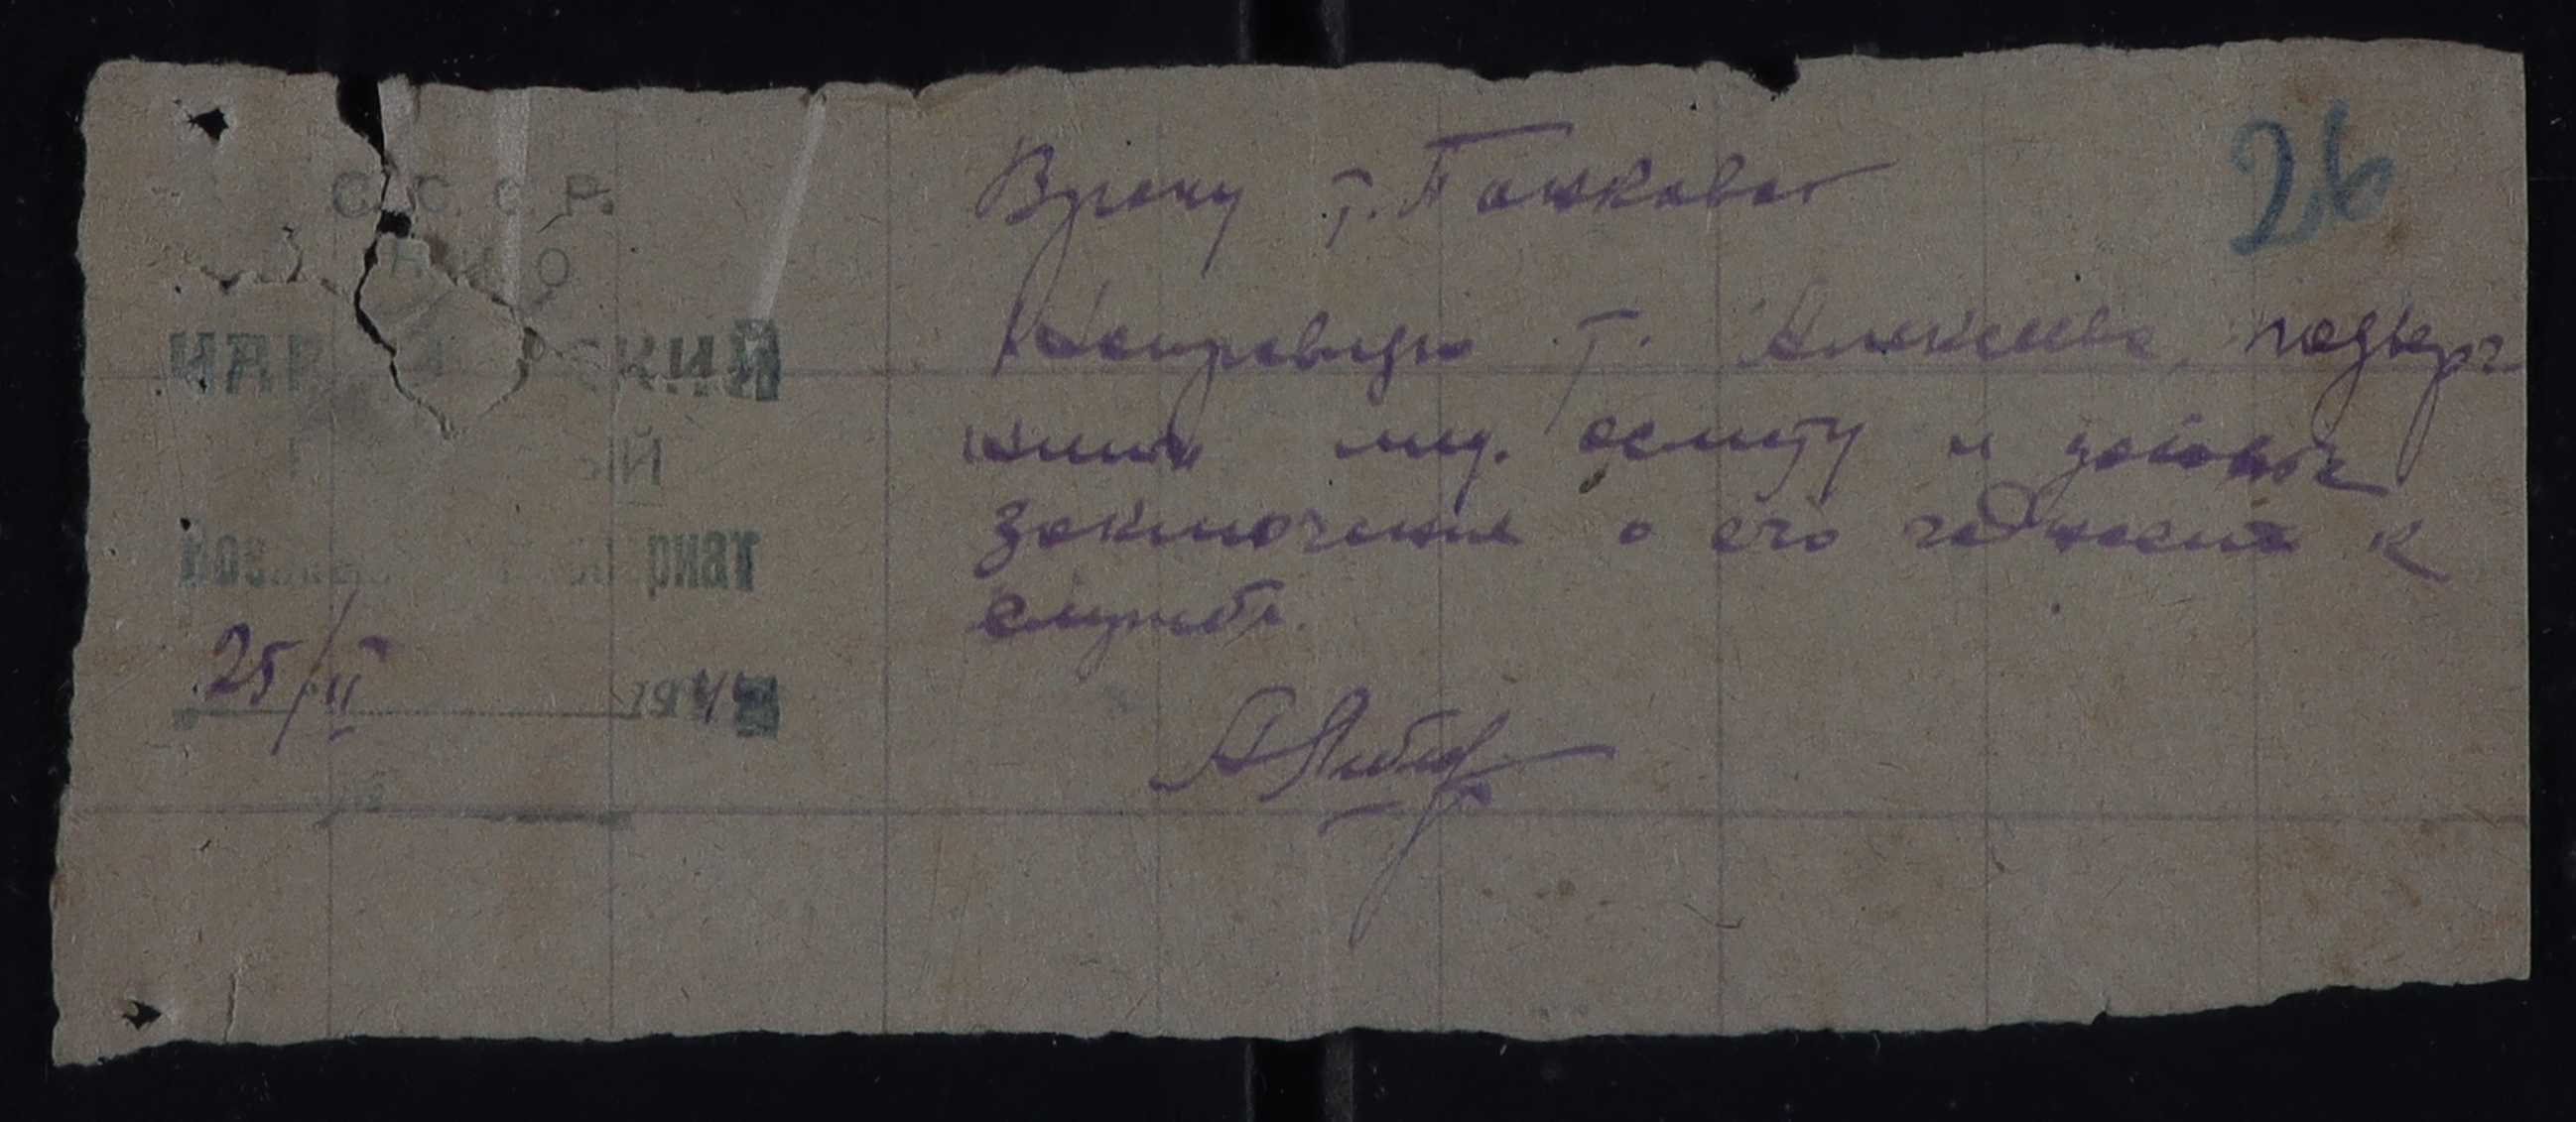 26
С. С. С. Р.
Н К О
СКИЙ
ЫЙ
риат
25/II 1944
Врачу т. Пашковой
Направляю т. Алексеева, подверг
нить мед. осмотру и дайте
заключение о его годности к
службе.